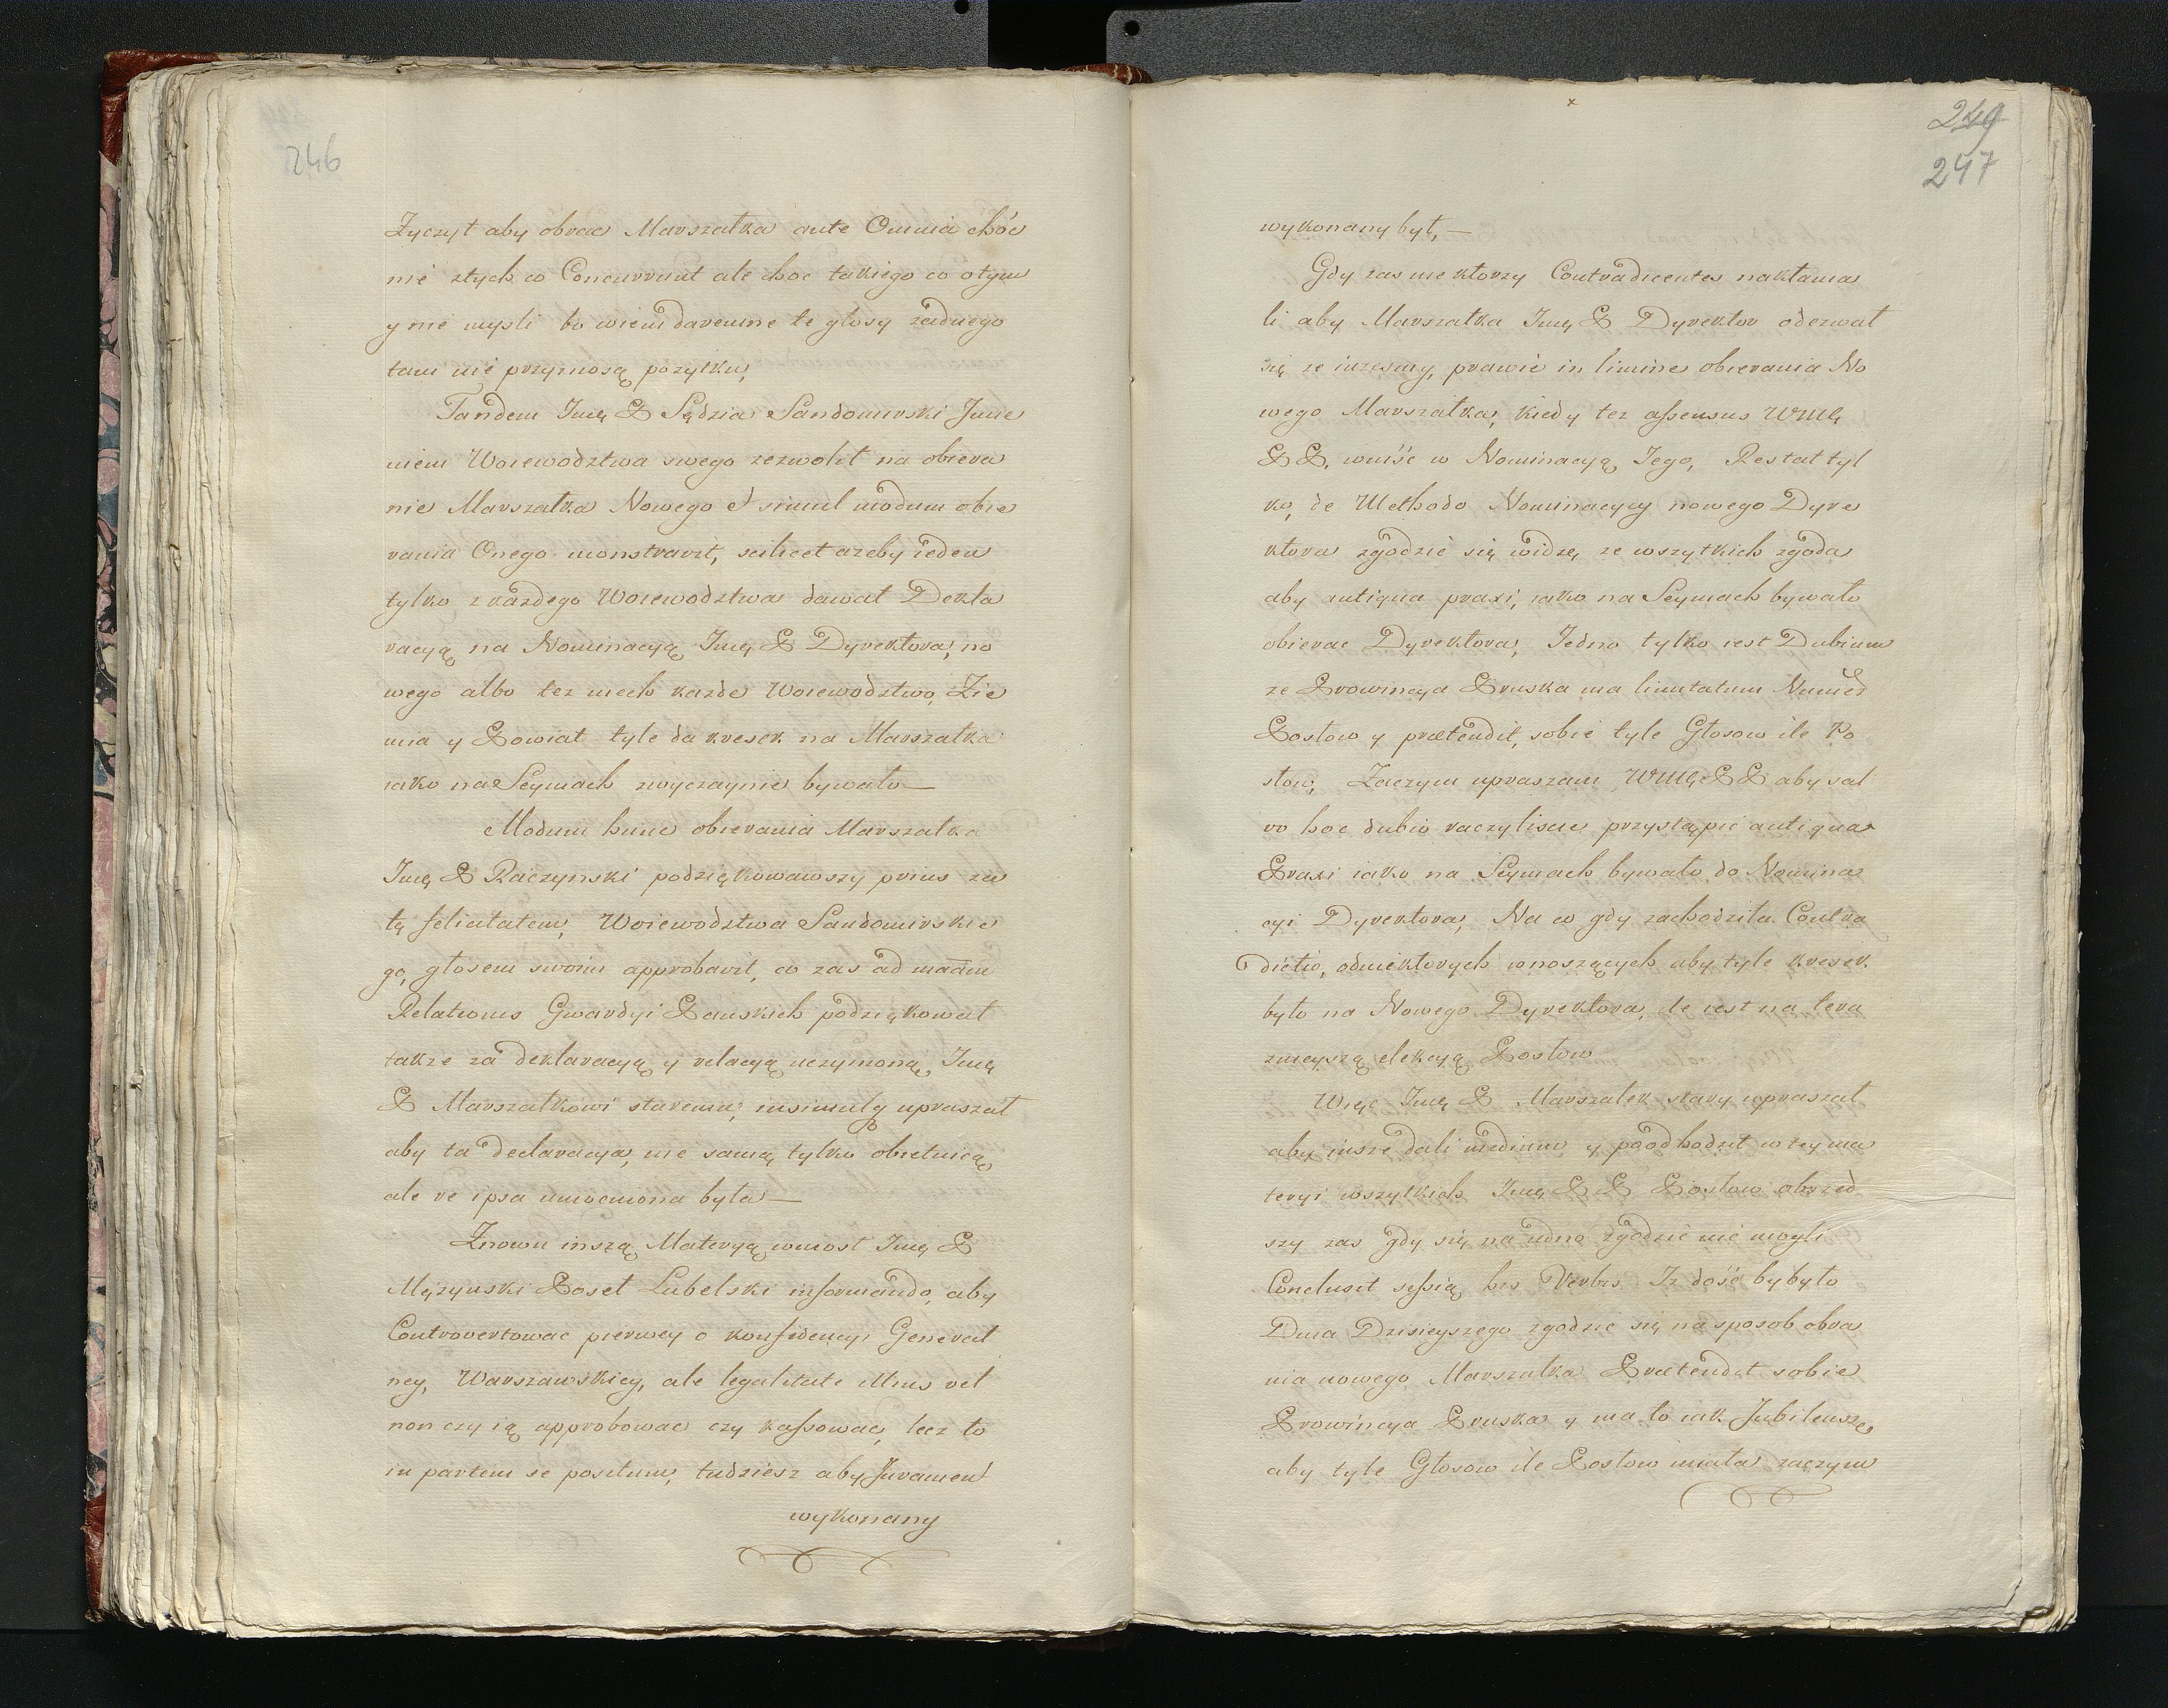 246
Zyczył aby obrac Marszałka ante Omnia choc
nie ztych co Concurrunt ale choc takiego co otym
y nie mysli bo wiem daremne te głosy zadnego
tam nie przyniosą pozytku,
Tandem Jmę P Sędzia Sandomirski Jmie
niem Woiewodztwa swego zezwolił na obiera
nie Marszałka Nowego et simul modum obie
rania Onego monstravit, scilicet azeby ieden
tylko z kazdego Woiewodztwa dawał Dekla
racyą na Nominacyą Jmę P Dyrektora, no
wego albo tez niech kazde Woiewodztwo, Zie
mia y Powiat tyle da kresek na Marszałka
iako na Seymach zwyczaynie bywało —
Modum hunc obierania Marszałka
Jmę P Raczynski podziękowawszy prius za
tę felicitatem, Woiewodztwa Sandomirskie
go, głosem swoim approbavit, co zas ad
Relationis Gwardyi Panskich podziękował
takze za deklaracyą y relacyą uczynioną, Jmę
P Marszałkowi staremu, insimulq upraszał
aby ta declaracya, nie samą tylko obietnicą
ale re ipsa umocniona była —
Znowu inszą Materyą wniosł Jmę P
Męzynski Poseł Lubelski informando, aby
Controvertowac pierwey o konfidencyi Generał
ney, Warszawskiey, ale legalitate illius vel
non czy ią approbowac czy kassowac, lecz to
in partem se positum, tudziesz aby Jurament
wykonany
249
247
wykonany był, —
Gdy zas niektorzy Contradicentes nakłania
li aby Marszałka Jmę P Dyrektor odezwał
się ze iuzesmy, prawie in limine obierania No
wego Marszałka, kiedy tez assensus WMę
PP. wniść w Nominacyą Jego, Restat tyl
ko, de Methodo Nominacycy nowego Dyre
ktora zgodzić się widzę ze wszytkich zgoda
aby antiqua praxi, iako na Seymach bywało
obierac Dyrektora, Jedno tylko iest Dubium
ze Prowincya Pruska ma limitatum Numer
Posłow y prætendit, sobie tyle Głosow ile Po
słow, Zaczym upraszam WMę PP aby sal
vo hoc dubio raczyliscie przystąpic antiqua
Praxi iako na Seymach bywało do Nomina
cyi Dyrektora, Na co gdy zachodziła Contra
dictio, odniektorych wnoszących aby tyle kresek
było na Nowego Dyrektora, ile iest na tera
znieyszą elekcyą Posłow
Więc Jmę P Marszałek stary upraszał
aby insze dali medium y poodhodził w tey ma
teryi wszytkich Jmę PP Posłow obszed
szy zas gdy się na iedno zgodzic nie mogli
Conclusit sessią his Verbis Iz dość by było
Dnia Dzisieyszego zgodzic się na sposob obra
nia nowego Marszałka Prætendit sobie
Prowincya Pruska y ma to iak Jubileusze,
aby tyle Głosow ile Posłow miała zaczym